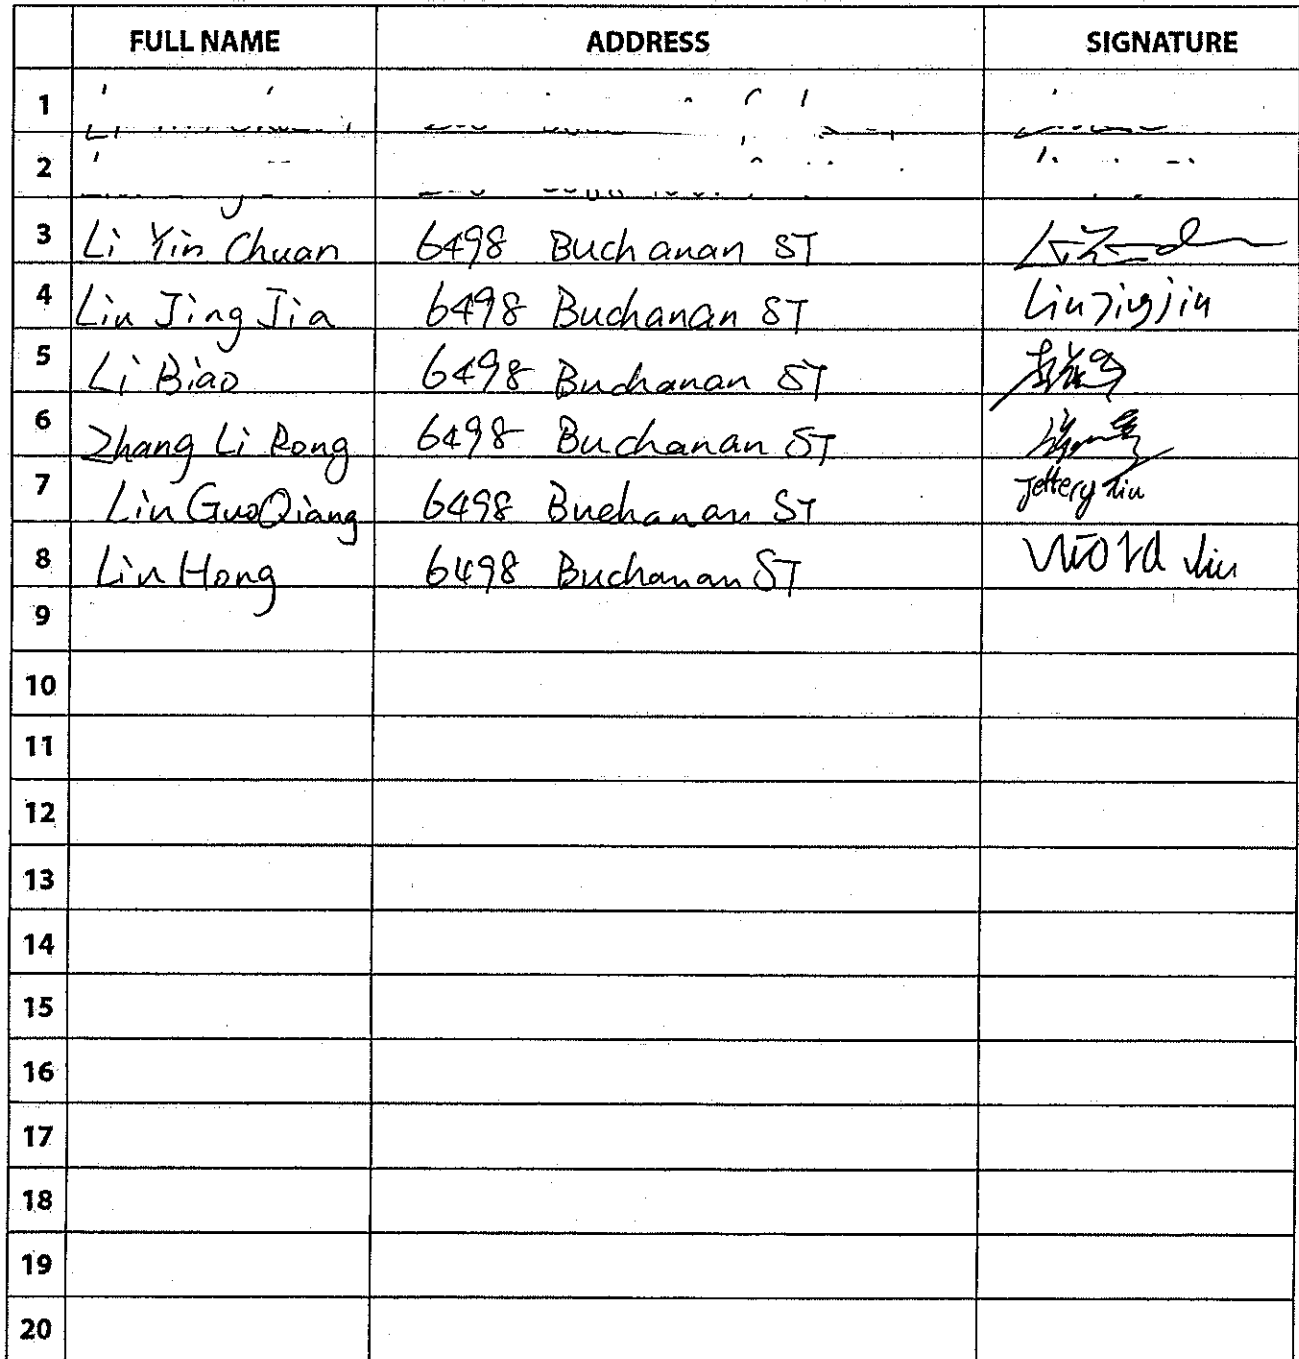 FULL NAME ADDRESS SIGNATURE
1
2
3 Li Yin Chuan 6498 Buchanan ST
4 Liu Jing Jia 6498 Buchanan ST Liu Jing jia
5 Li Biao 6498 Buchanan ST
6 Zhang Li Rong 6498 Buchanan ST
7 Liu GuoQiang 6498 Buchanan ST Jeffery Liu
8 Liu Hong 6498 Buchanan ST Liu
9
10
11
12
13
14
15
16
17
18
19
20